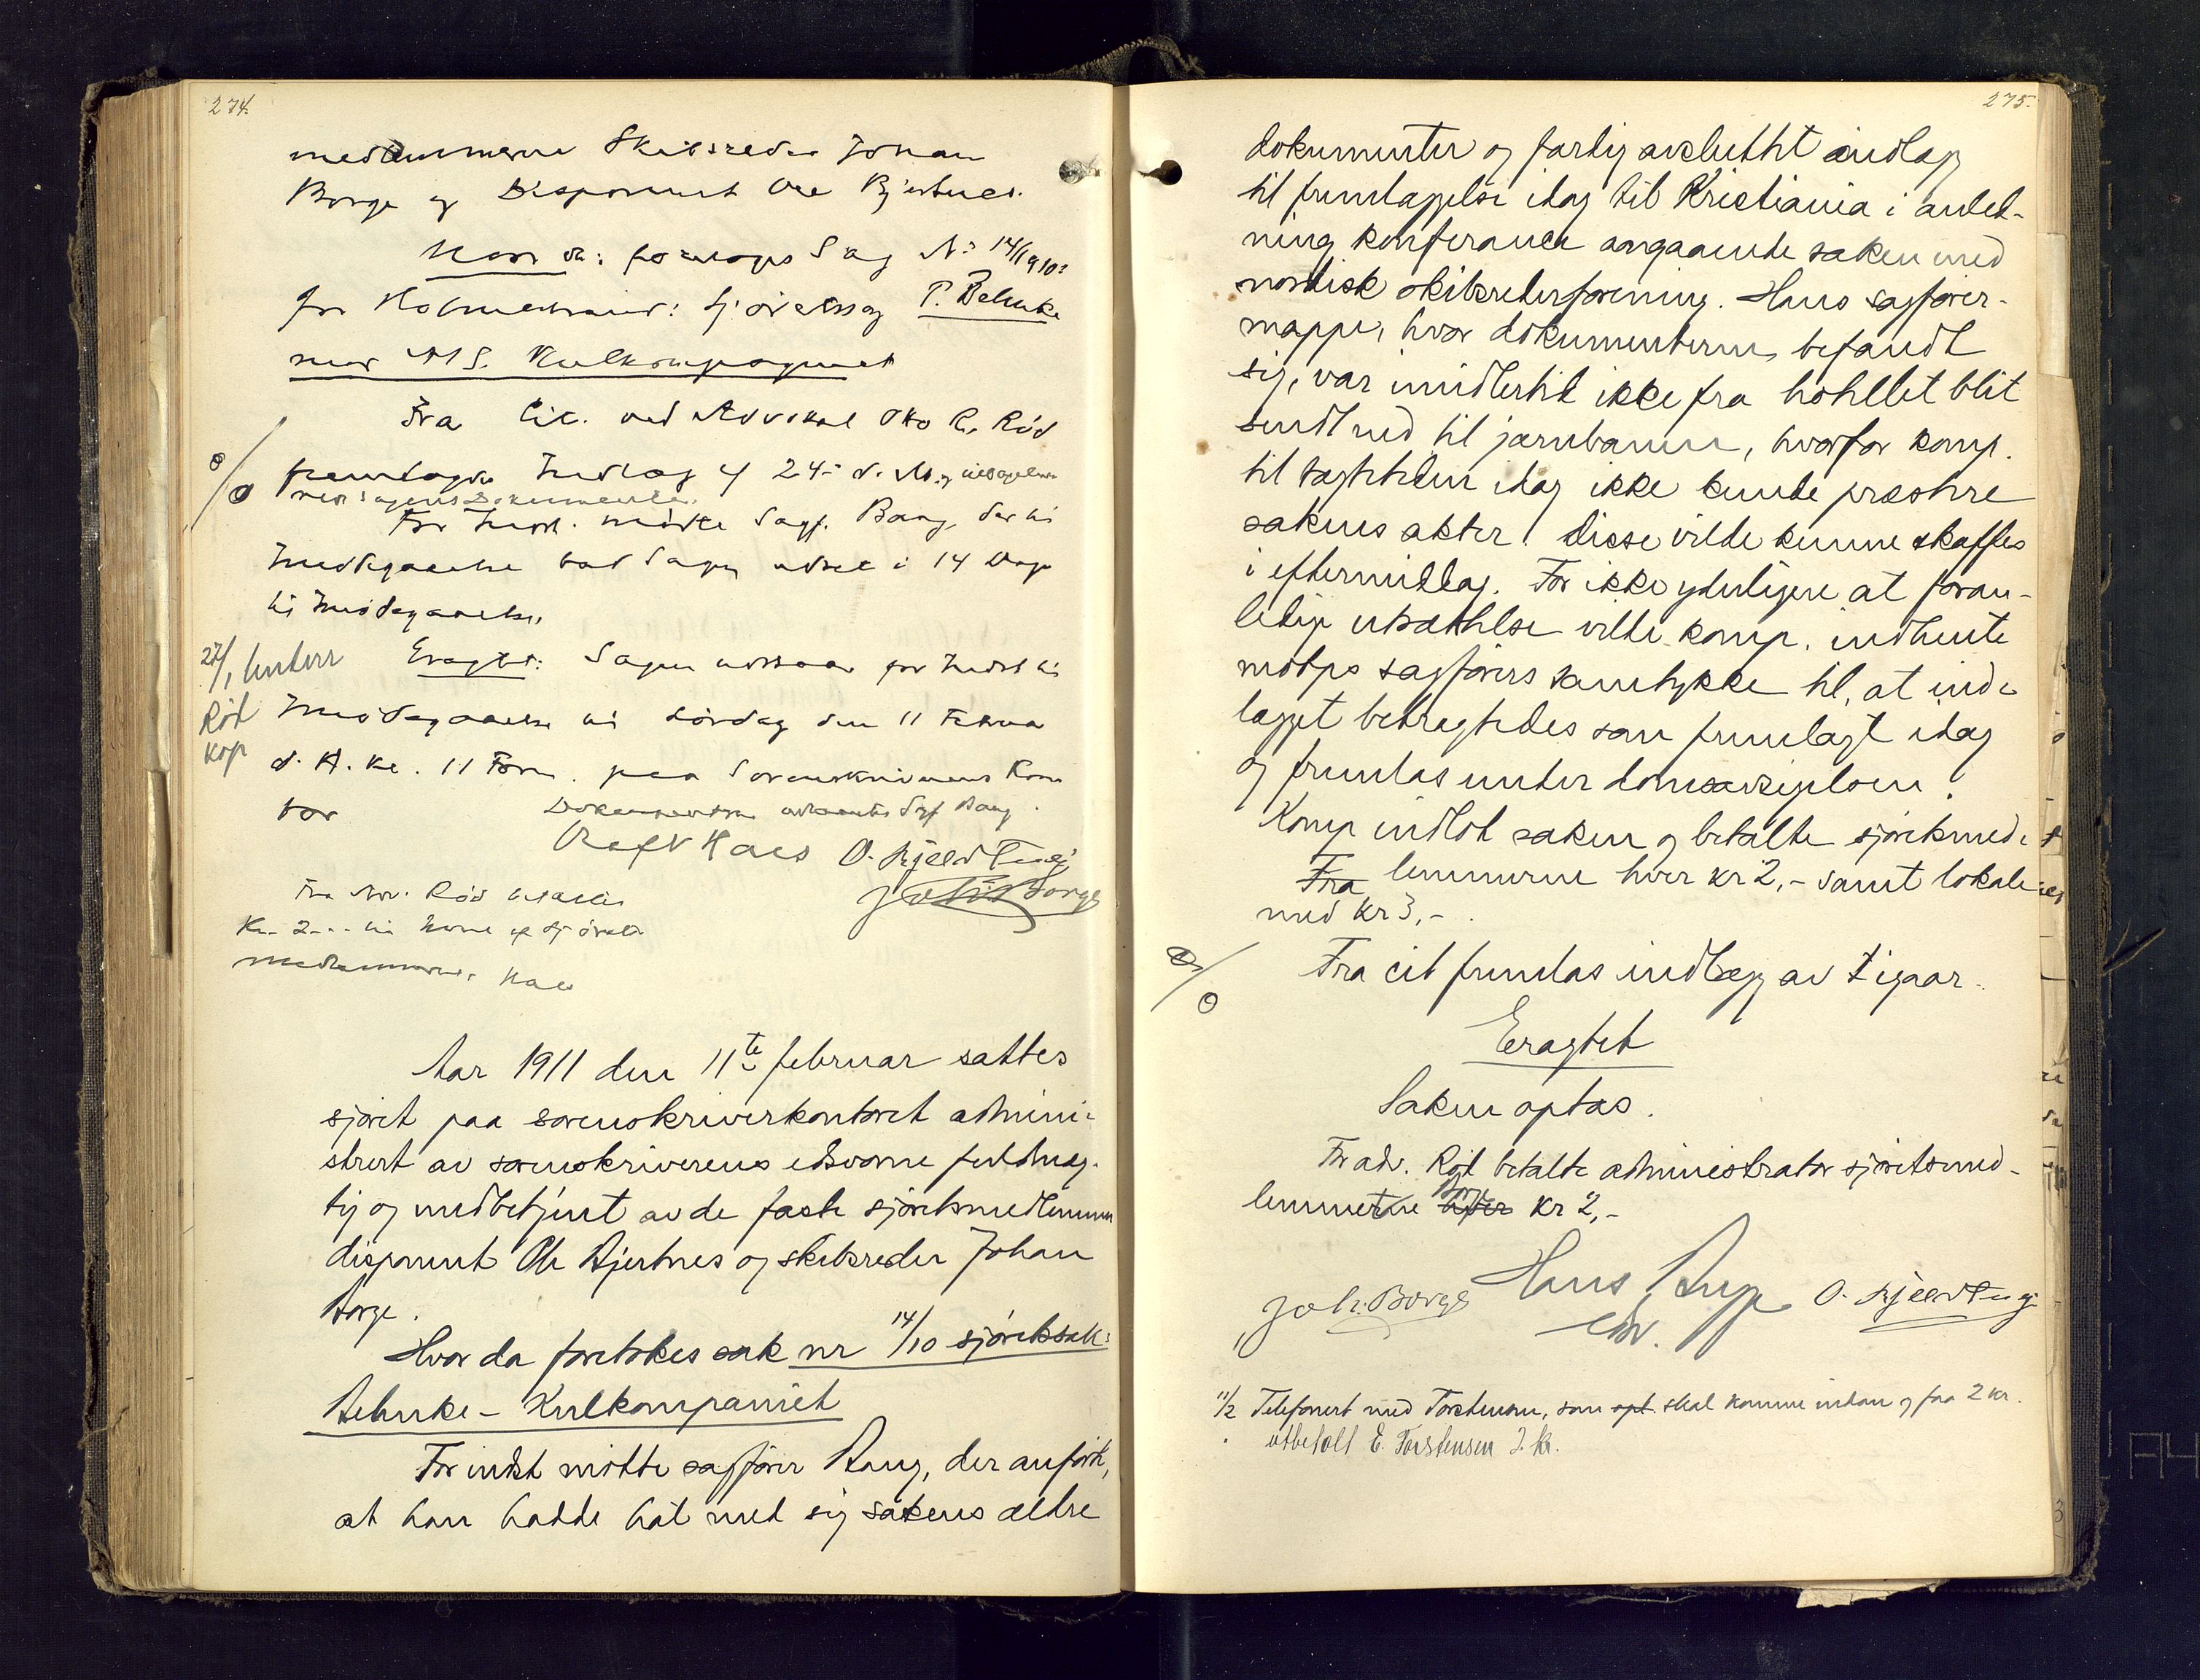 274.
medlemmerne Skibsreder Johan
Borge og Disponent Ole Bjertnes.
Hvor da: foretoges Sag N: 14/1910:
for Holmestrand: Sjöretssag P. Behnke
mod A/S. Kulkompagniet
Fra Cit. ved Advokat Otto R. Röd
fremlagdes Indlæg af 24- d. M. og
med Sagens Dokumenter.
For Indst. mödte Sagf. Bang, der til
Imödegaaelse bad Sagen udsat i 14 Dage
til Imödegaaelse.
27/1 Röd kop
Eragtet: Sagen udstaar for Indst til
Imödegaaelse til Lördag den 11 Februar
d. A. Kl. 11 Form. paa Sorenskriverens Kon
tor
Dokumenterne Sagf Bang.
O. Kjeld
Joh. Borge
Fra Adv. Röd betaltes
Kr. 2.-- til hver af Sjörets
medlemmerne.
Aar 1911 den 11te februar sattes
sjöret paa sorenskriverkontoret admini-
strert av sorenskriverens edsvorne fuldmæg-
tig og medbetjent av de faste sjöretsmedlemmer
disponent Ole Bjertnes og skibsreder Johan
Borge.
Hvor da foretokes sak nr 14/10 sjöretssak:
Behnke – Kulkompaniet
For indst mötte sagförer Bang, der anförte,
at han hadde hat med sig sakens ældre
275.
dokumenter og færdig avsluttet indlæg
til fremlæggelse idag til Kristiania i anled-
ning konferanse angaaende saken med
nordisk skibsrederforening. Hans sagförer-
mappe, hvor dokumenterne befandt
sig, var imidlertid ikke fra hotellet blit
sendt ned til jernbanen, hvorfor komp.
til tægtetiden idag ikke kunde præstere
sakens akter. Disse vilde kunne skaffes
i eftermiddag. For ikke yderligere at foran-
ledige utsættelse vilde komp. indhente
motps sagförers samtykke til, at ind-
lægget betragtedes som fremlagt idag
og fremlas under
Komp indlot saken og betalte sjöretsmed-
Fra lemmerne hver kr 2,- samt lokale
med kr 3,-.
Fra cit fremlas indlæg av igaar.
Eragtet
Saken optas.
For adv. Röd betalte administrator sjöretsmed-
lemmerne kr 2,-
Joh: Borge Hans O. Kjeld
11/2 Telefonert med Torstensen, som skal komme indom og faa 2 kr.
utbetalt E. Torstensen 2 kr.